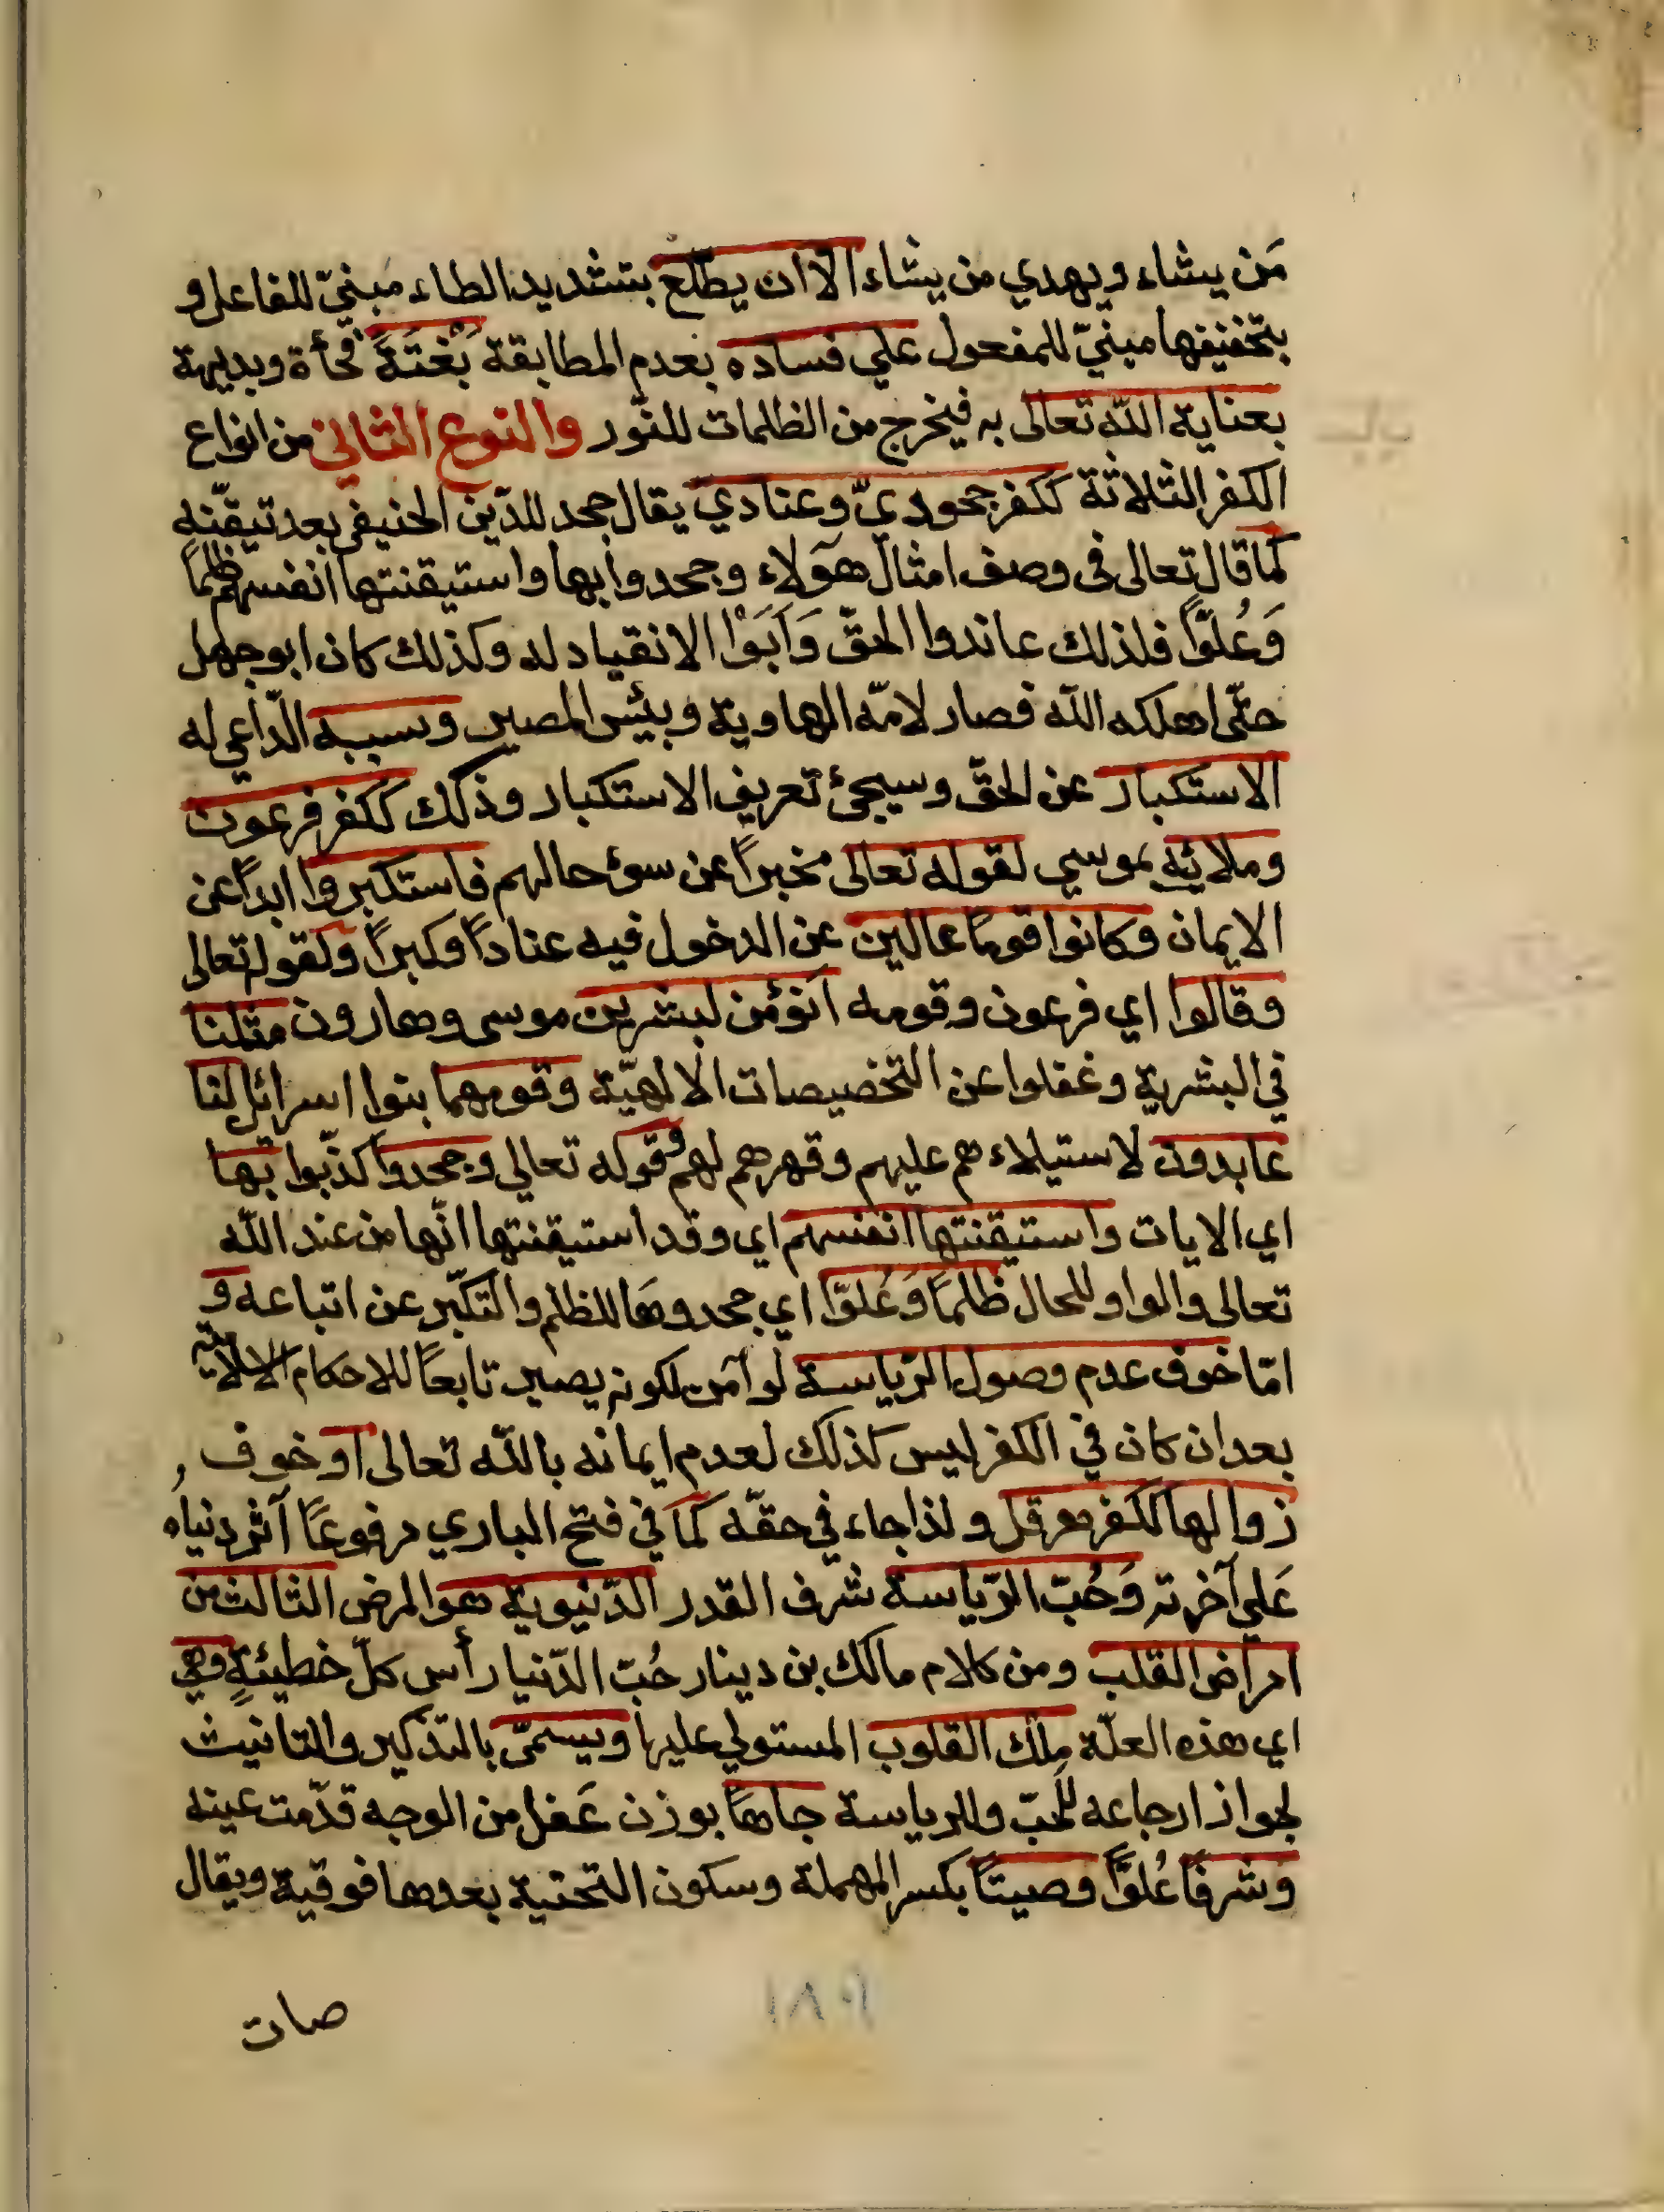 مَن يشاء ويهدي من يشاء الا ان يطّلع بتشديد الطاء مبنيّ للفاعل و
بتخفيفها مبنيّ للمفعول علي فساده بعدم المطابقة بَغْتَةً فجأة وبديهة
بعناية اللّه تعالى به فيخرج من الظلمات للنّور والنوع الثاني من انواع
الكفر الثلاثة ككفر جحوديّ وعنادي يقال جحد للدّين الحنيفي بعد تيقّنه
كما قال تعالى في وصف امثال هؤلاء وجحدوا بها واستيقنتها انفسهم ظلمًا
وَعُلوًّا فلذلك عاندوا الحقّ وَاَبَوْا الانقياد له وكذلك كان ابو جهل
حتّى اهلكه اللّه فصار لامّه الهاوية وبئس المصير وسببه الدّاعي له
الاستكبار عن الحقّ وسيجئ تعريف الاستكبار وذلك ككفر فرعون
وملائه بموسي لقوله تعالى مخبرًا عن سوء حالهم فاستكبروا ابدًا عن
الايمان وكانوا قومًا عالين عن الدخول فيه عنادًا وكبرًا ولقوله تعالى
وقالوا اي فرعون وقومه انؤمن لبشرين موسى وهارون مثلنا
في البشرية وغفلوا عن التخصيصات الالهيّة وقومهما بنوا اسرائل لنا
عابدون لاستيلاءهم عليهم وقهرهم لهم وقوله تعالي وجحدوا كذّبوا بها
اي الايات واستيقنتها انفسهم اي وقد استيقنتها انّها من عند اللّه
تعالى والواو للحال ظلمًا وَعُلوًّا اي جحدوها للظلم والتكبّر عن اتباعه و
امّا خوف عدم وصول الرّياسة لو آمن لكونه يصير تابعًا للاحكام الالاهيّة
بعد ان كان في الكفر ليس كذلك لعدم ايمانه باللّه تعالى او خوف
زوالها ككفر هرقل ولذا جاء في حقّه كما في فتح الباري مرفوعًا آثر دنياه
عَلي آخرته وَحُبّ الرّياسة شرف القدر الدّنيوية هو المرض الثالث من
امراض القلب ومن كلام مالك بن دينار حُبّ الدّنيا رأس كلّ خطيئةٍ وهي
اي هذه العلّة مِلك القلوب المستولي عليها ويسمّى بالتذكير والتانيث
لجواز ارجاعه للحُبّ وللرياسة جاهًا بوزن عَفل من الوجه قدّمت عينه
وشرفًا عُلوًّا وصيتًا بكسر المهملة وسكون التحتية بعدها فوقية ويقال
صات